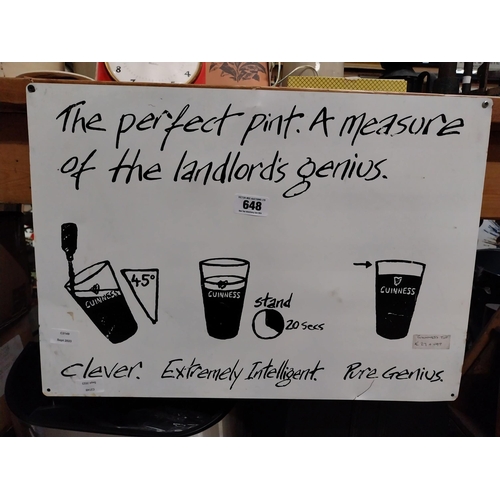 The perfect pint. A measure
of the landlord's genius.
648
45°
GUINNESS
GUINNESS
stand
20 secs
GUINNESS
Clever. Extremely Intelligent. Pure Genius.